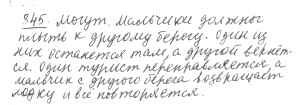 845. Могут. Мальчики должны
плыть к другому берегу. Один из
них останется там, а другой вернёт-
ся. Один турист переправляется, а
мальчик с другого берега возвращает
лодку и всё повторяется.